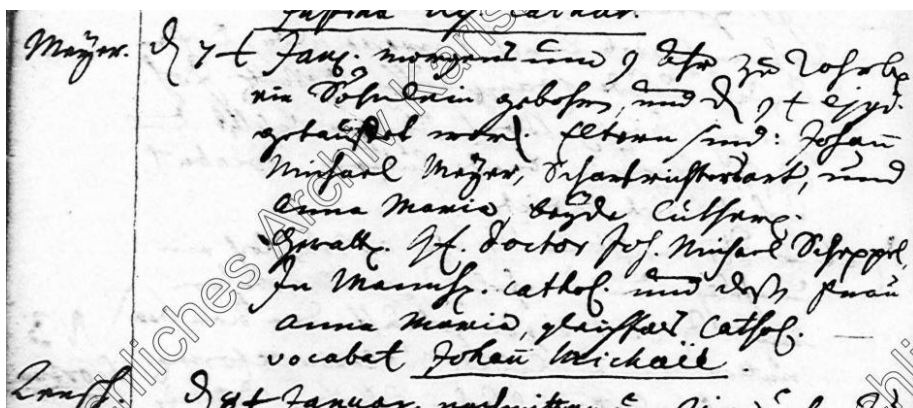 Meÿer. d 7t Jan. morgens um 9 Uhr zu Rohrb.
ein Söhnlein gebohren, und d 9t ejsd.
getauffet word. Eltern sind: Johañ
Michael Meÿer, Scharfrichter, und
Anna Maria, beÿde Luther.
Gevatt. H. Doctor Joh. Michael Scheppel,
In Mannh. cathol. und deß Frau
Anna Maria, gleichfals Cathol.
vocabat Johañ Michaël
d 8t Januar. nachmittag